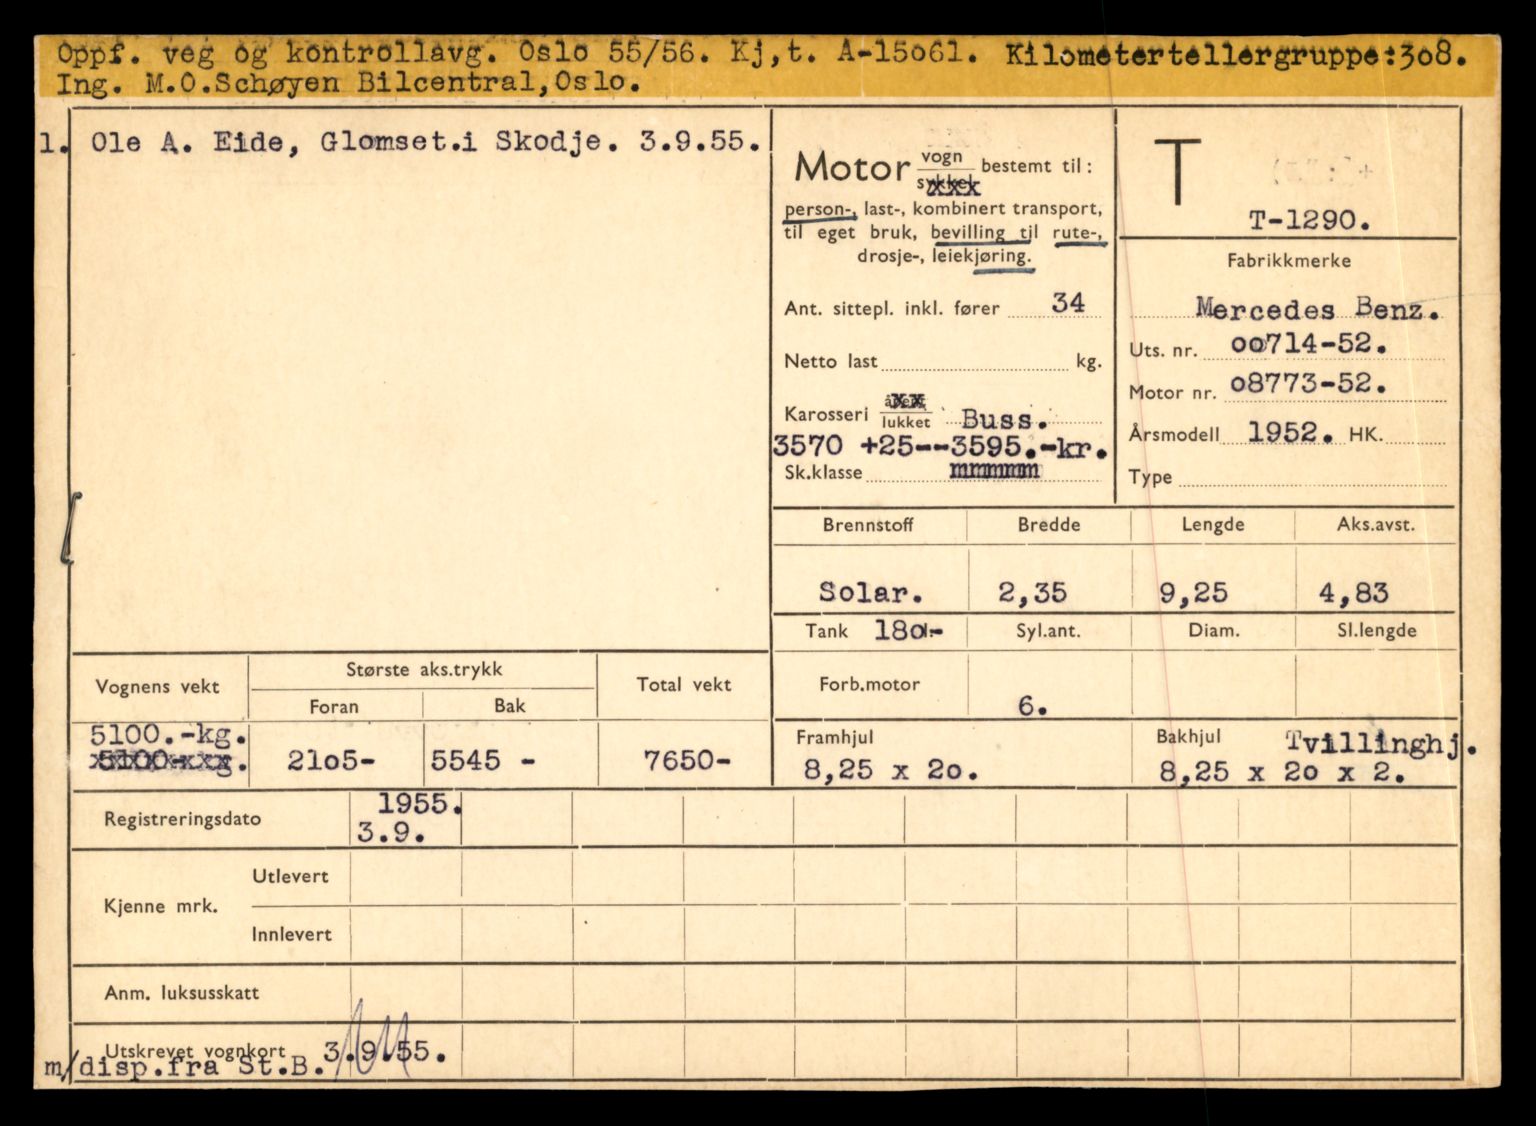 Oppf. veg og kontrollavg. Oslo 55/56. Kj,t. A-15061. Kilometertellergruppe:308.
Ing. M.O.Schøyen Bilcentral,Oslo.
1. Ole A. Eide, Glomset.i Skodje. 3.9.55.
Motor vogn bestemt til:
person-, last-, kombinert transport,
til eget bruk, bevilling til rute-,
drosje-, leiekjøring.
Ant. sittepl. inkl. fører 34
Netto last kg.
Karosseri åpent
lukket Buss.
3570 +25--3595.-kr.
Sk.klasse
T
T-1290.
Fabrikkmerke
Mercedes Benz.
Uts. nr. 00714-52.
Motor nr. 08773-52.
Årsmodell 1952. HK.
Type
Brennstoff Bredde Lengde Aks.avst.
Solar. 2,35 9,25 4,83
Tank 180.- Syl.ant. Diam. Sl.lengde
Forb.motor 6.
Vognens vekt Største aks.trykk Total vekt
Foran Bak
5100.-kg.
2105- 5545 - 7650-
Framhjul Bakhjul Tvillinghj.
8,25 x 20. 8,25 x 20 x 2.
Registreringsdato 1955.
3.9.
Kjenne mrk. Utlevert
Innlevert
Anm. luksusskatt
Utskrevet vognkort 3.9.55.
m/disp.fra St.B.